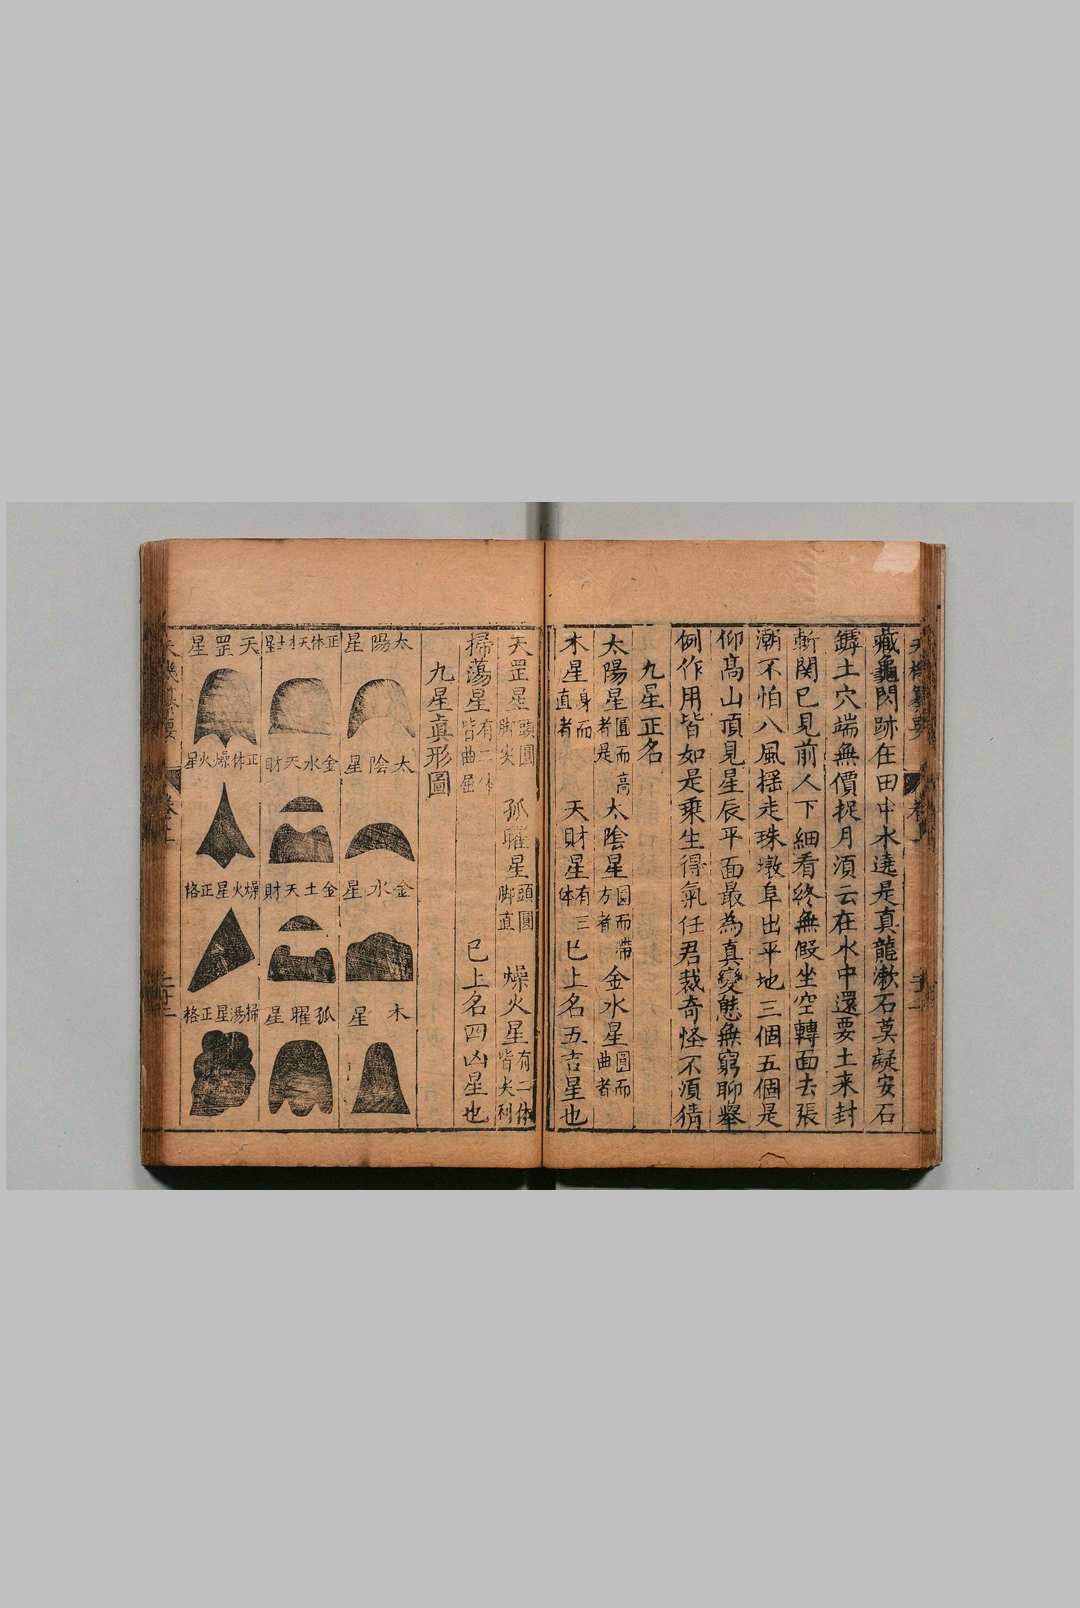 藏龜閃跡在田中水遶是真龍漱石莫疑安石
鑄土穴端無價捉月須云在水中還要土來封
斬関已見前人下細看終無假坐空轉面去張
潮不怕八風揺走珠墩阜出平地三個五個是
仰髙山頂見星辰平面最為真變態無窮聊舉
例作用皆如是乗生得氣任君裁奇怪不須猜
九星正名
太陽星圓而高者是 太陰星圓而帶方者 金水星圓而曲者
木星身而直者 天財星有三体 已上名五吉星也
天罡星頭圓脚尖 孤曜星頭圓脚直 燥火星有二体皆尖利
掃蕩星有二体皆曲屈 已上名四凶星也
九星真形圖
太陽星
太陰星
金水星
木星
正体天才土星
金水天財
金土天財
孤曜星
天罡星
正体燥火星
燥火星正格
掃湯星正格